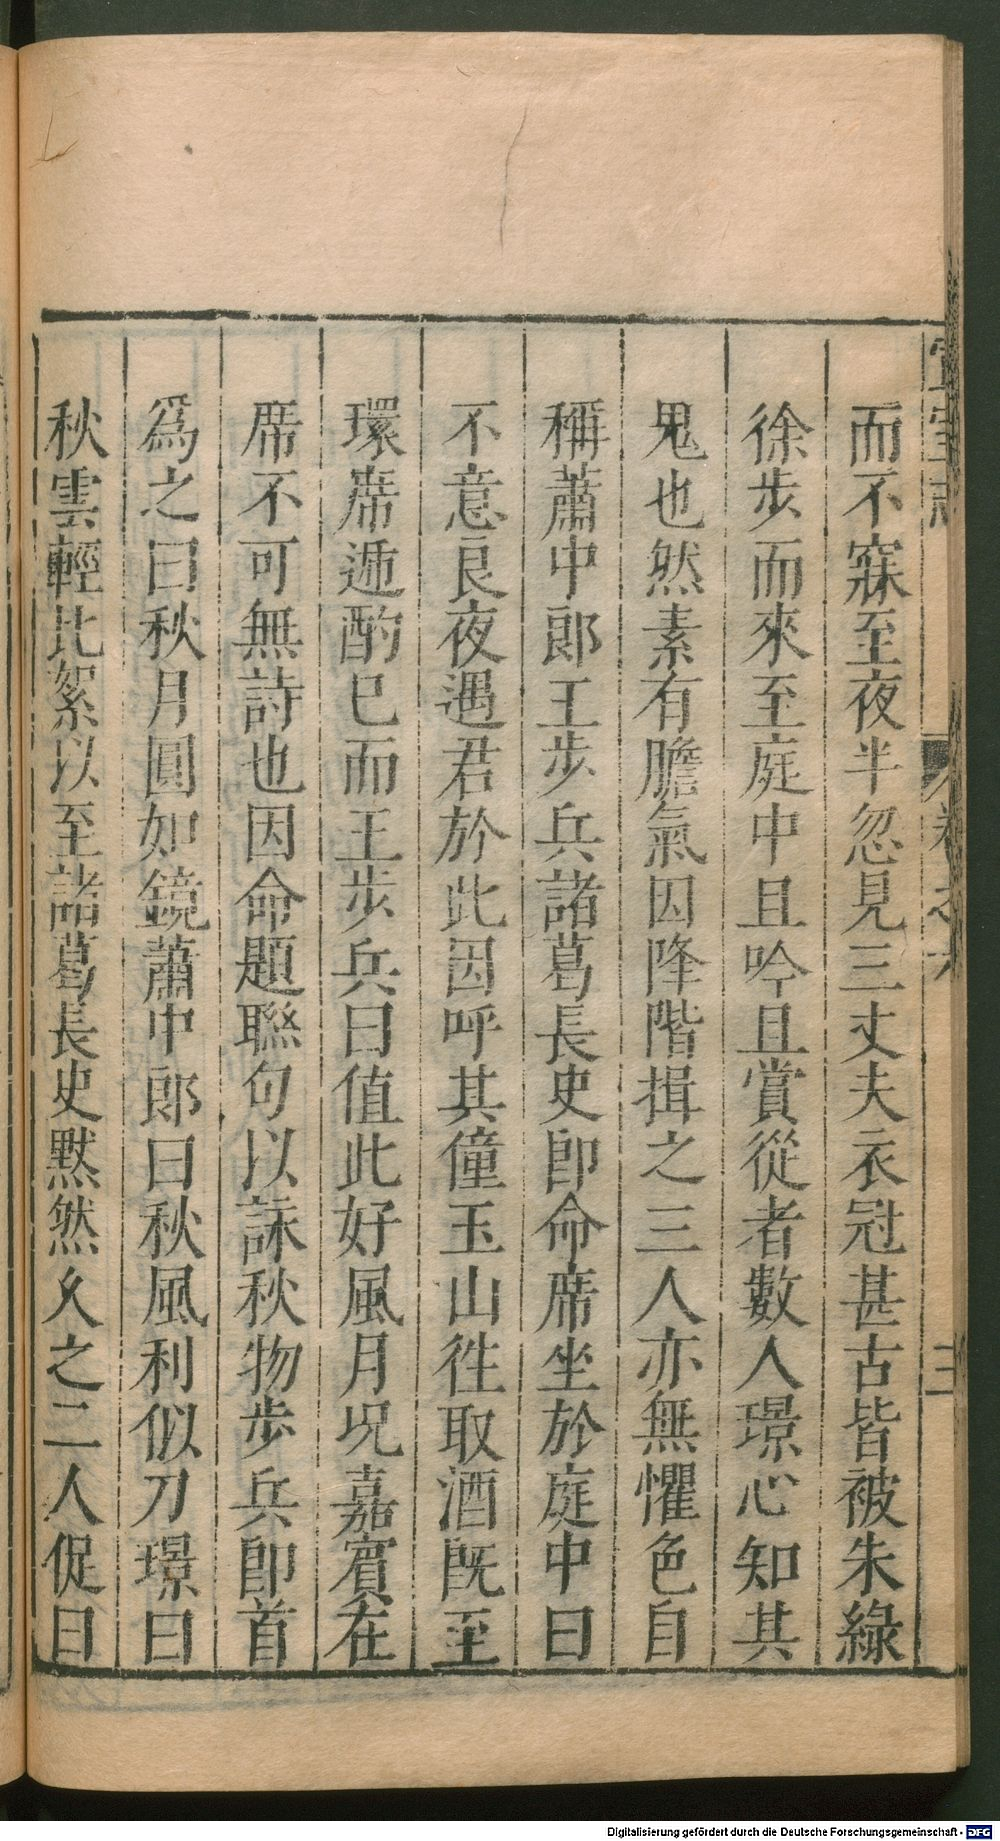 而不寐至夜半忽見三丈夫衣冠甚古皆被朱綠
徐步而來至庭中且吟且賞從者數人璟心知其
鬼也然素有膽氣因降階揖之三人亦無懼色自
稱蕭中郎王步兵諸葛長史即命席坐於庭中曰
不意良夜遇君於此因呼其僮玉山徃取酒既至
環席遞酌已而王步兵曰值此好風月况嘉賓在
席不可無詩也因命題聮句以詠秋物步兵即首
爲之曰秋月圓如鏡蕭中郎曰秋風利似刀璟曰
秋雲輕比絮以至諸葛長史黙然乆之二人促曰
Digitalisierung gefördert durch die Deutsche Forschungsgemeinschaft - DFG